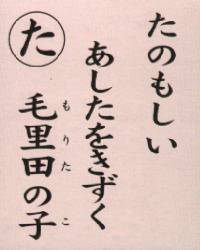 たのもしい
あしたをきずく
毛里田の子
もりたこ
た